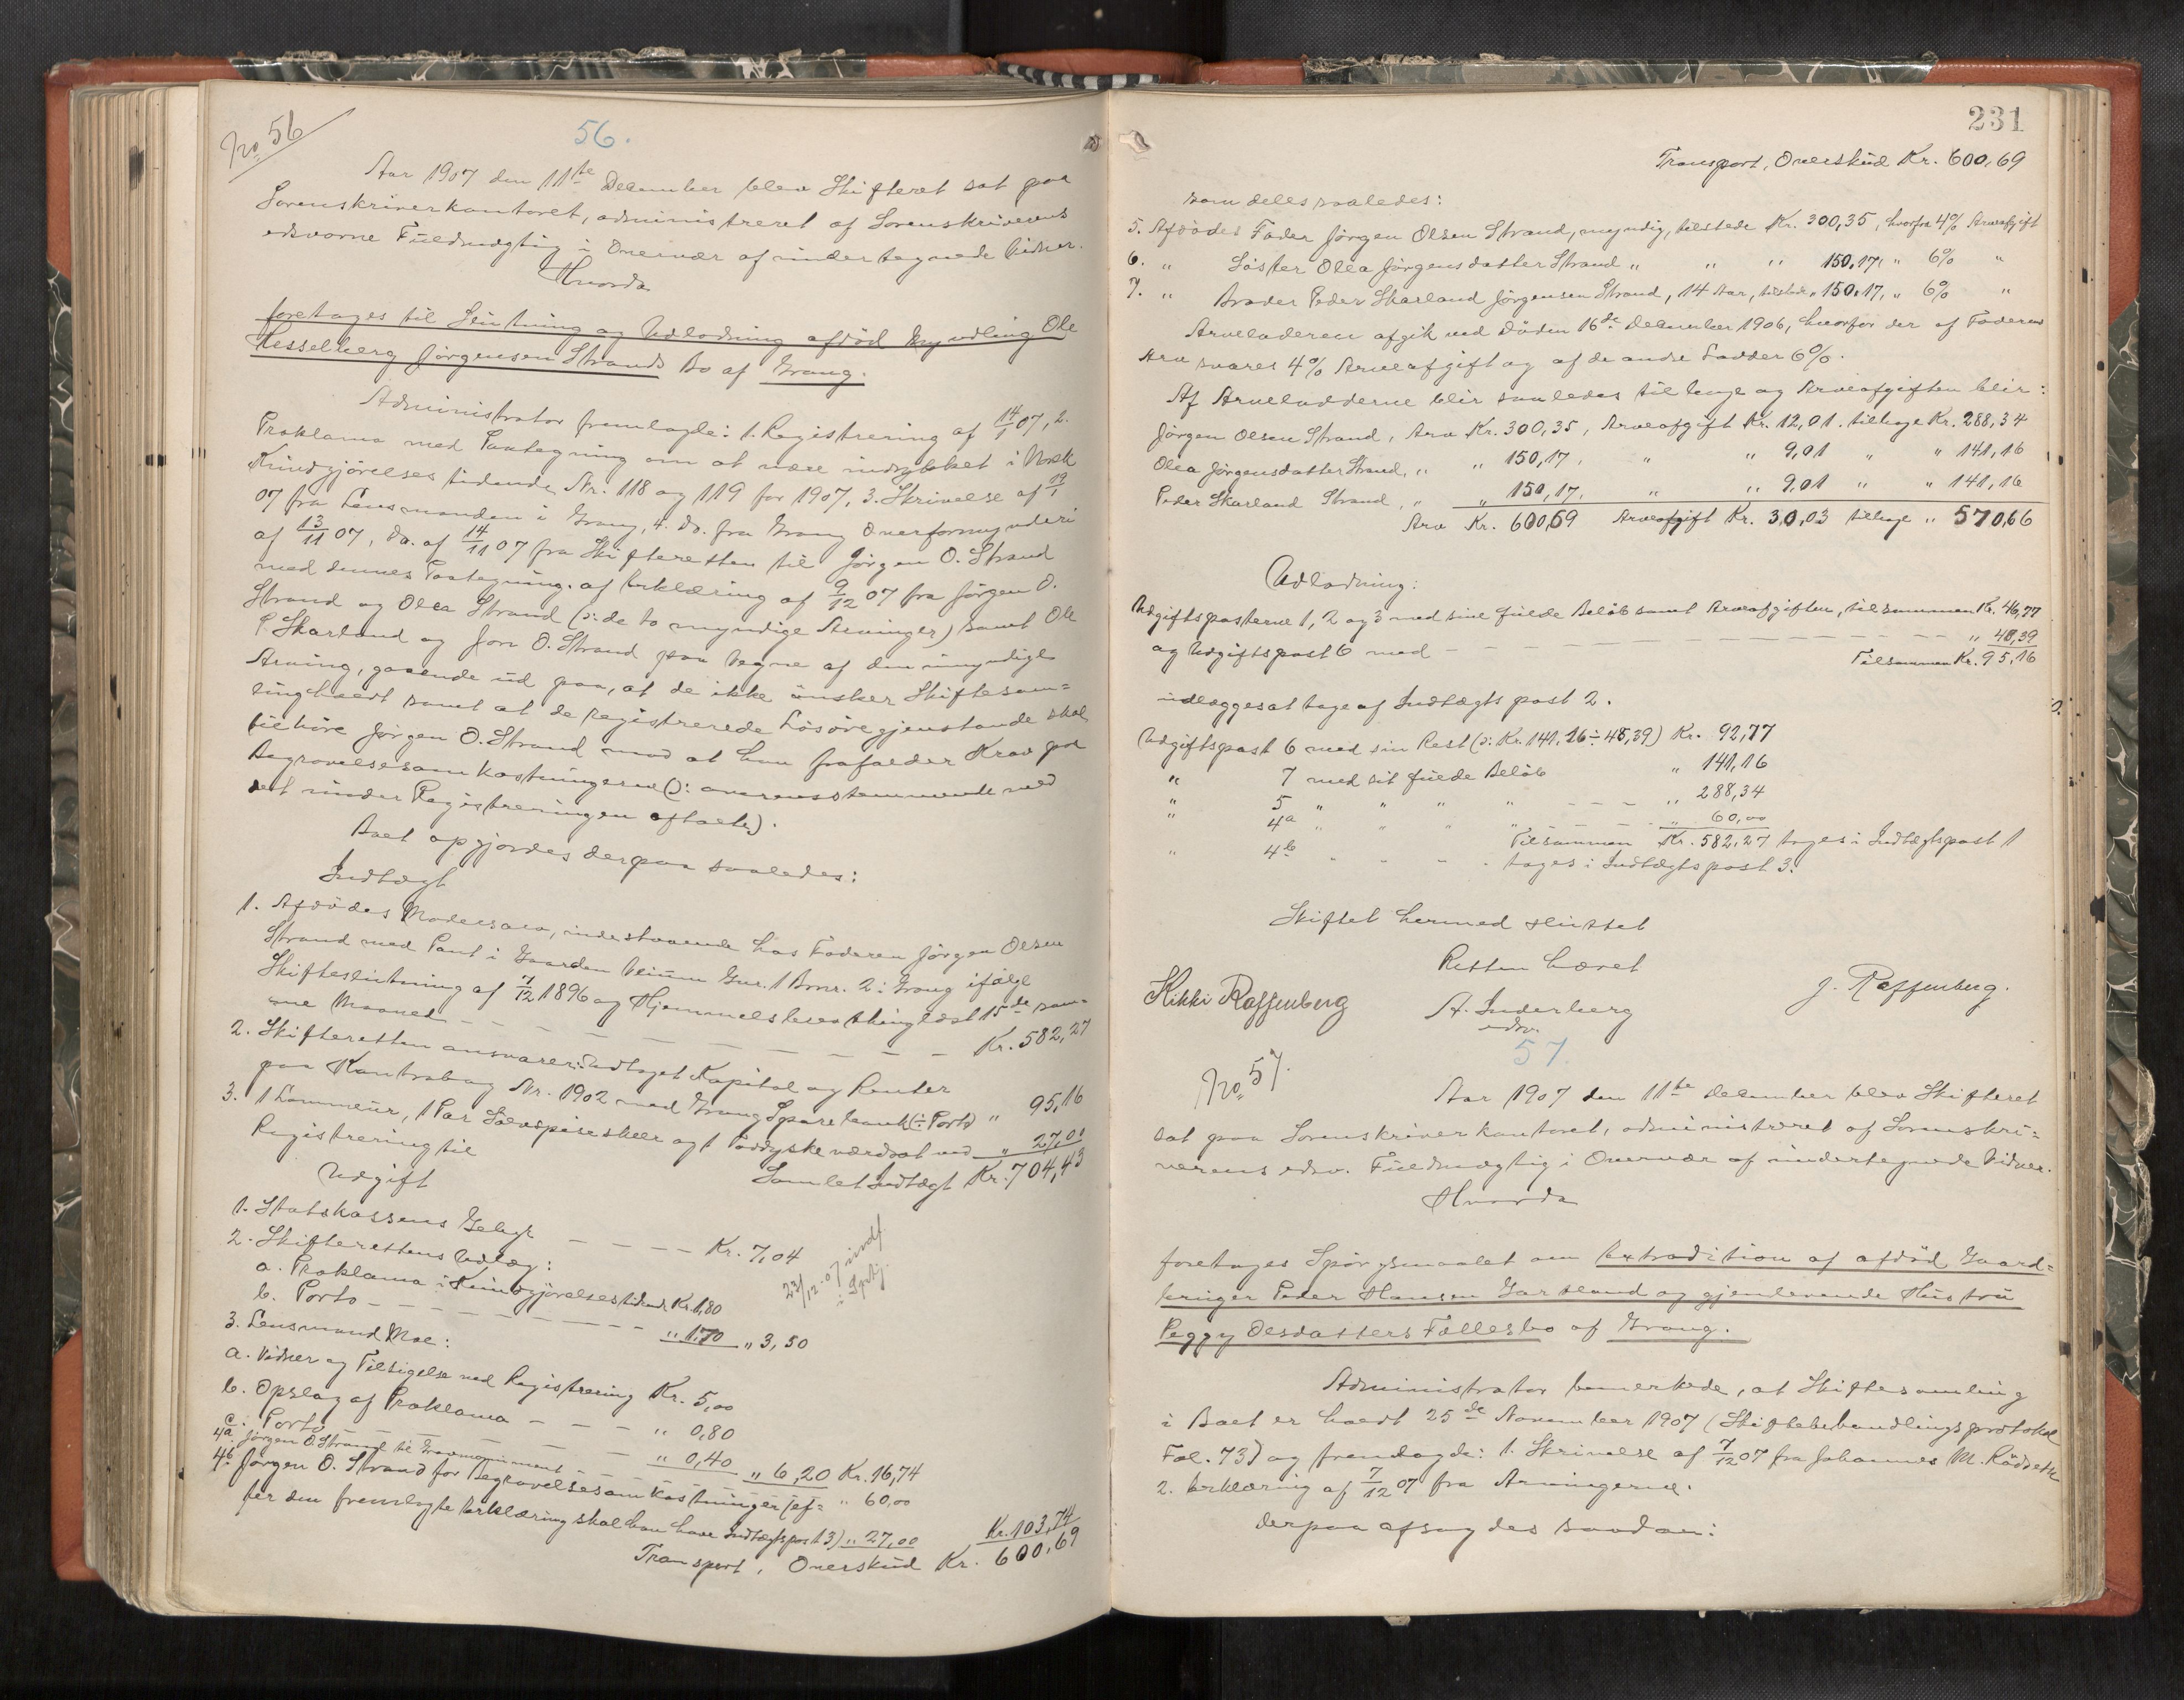 No. 56
56.
Aar 1907 den 11te December blev Skifteret sat paa
Sorenskriverkontoret, administreret af Sorenskriverens
edsvorne Fuldmægtig i Overvær af undertegnede Vidner.
Hvorda
foretages til Slutning og Udlodning afdød Myndling Ole
Hesselberg Jørgensen Strands Bo af Grong.
Administrator fremlagde: 1. Registrering af 14/1 07, 2.
Proklama med Paategning om at være indrykket i Norsk
Kundgjørelsestidende Nr. 118 og 119 for 1907, 3. Skrivelse af
07 fra Lensmanden i Grong, 4. Do. fra Grong Overformynderi
af 13/11 07, Do. af 14/11 07 fra Skifteretten til Jørgen O. Strand
med dennes Paategning. af Erklæring af 9/12 07 fra Jørgen O.
Strand og Olea Strand (ɔ: de to myndige Arvinger) samt Ole
P. Skarland og Jon O. Strand paa Vegne af den umyndige
Arving, gaaende ud paa, at de ikke ønsker Skiftesam=
ling holdt samt at de registrerede Løsøregjenstande skal
tilhøre Jørgen O. Strand mod at han frafalder Krav paa
Begravelsesomkostningerne (ɔ: overensstemmende med
det under Registreringen aftalte).
Boet opgjordes derpaa saaledes:
Indtægt
1. Afdødes Mødrearv, indestaaende hos Faderen Jørgen Olsen
Strand med Pant i Gaarden Veium Gnr. 1 Bnr. 2 i Grong ifølge
Skifteslutning af 7/12 1896 og Hjemmelsbrev thinglæst 15de sam=
me Maaned – – – – – – – – – Kr. 582,27
2. Skifteretten ansvarer: Udtaget Kapital og Renter
paa Kontrabog Nr. 1902 med Grong Sparebank (÷ Porto) " 95,16
3. 1 Lommeur, 1 Par Sølvspiseskeer og 1 værdsat ved
Registrering til " 27,00
Samlet Indtægt Kr. 704,43
Udgift
1. Statskassens Gebyr – – – – Kr. 7,04
2. Skifterettens Udlæg:
a. Proklama i Kundgjørelsestidende Kr. 1,80
b. Porto – – – – – – – " 1,70 " 3,50
23/12.07 indf
i Sptj.
3. Lensmand Moe:
a. Vidner og Tilsigelse ved Registrering Kr. 5,00
b. Opslag af Proklama – – – " 0,80
c. Porto – – – – – " 0,40 " 6,20 Kr. 16,74
4a. Jørgen O. Strand til Gravmonument – – – " 60,00
4b. Jørgen O. Strand for Begravelsesomkostninger (ef=
ter den fremlagte Erklæring skal han have Indtægtspost 3) " 27,00 Kr. 103,74
Transport, Overskud Kr. 600,69
231
Transport, Overskud Kr. 600,69
som deles saaledes:
5. Afdødes Fader Jørgen Olsen Strand, myndig, tilstede Kr. 300,35, hvorfra 4% Arveafgift
6. " Søster Olea Jørgensdatter Strand " " " 150,17, " 6% "
7. " Broder Peder Skarland Jørgensen Strand, 14 Aar, tilstede " 150,17, " 6% "
Arveladeren afgik ved Døden 16de December 1906, hvorfor der af Faderens
Arv svares 4% Arveafgift og af de andre Lodder 6%.
Af Arvelodderne blir saaledes tilbage og Arveafgiften blir:
Jørgen Olsen Strand, Arv Kr. 300,35, Arveafgift Kr. 12,01. tilbage Kr. 288,34
Olea Jørgensdatter Strand, " " 150,17, " " 9,01 " " 141,16
Peder Skarland Strand, " " 150,17, " " 9,01 " " 141,16
Arv Kr. 600,69 Arveafgift Kr. 30,03 tilbage " 570,66
Udlodning:
Udgiftsposterne 1, 2 og 3 med sine fulde Beløb samt Arveafgiften, tilsammen Kr. 46,77
og Udgiftspost 6 med – – – – – – – – – – " 48,39
Tilsammen Kr. 95,16
udlægges at tage af Indtægtspost 2.
Udgiftspost 6 med sin Rest (ɔ: Kr. 141,16 ÷ 48,39) Kr. 92,77
" 7 med sit fulde Beløb " 141,16
" 5 " " " " – – – " 288,34
" 4a " " " " – – – " 60,00
Tilsammen Kr. 582,27 tages i Indtægtspost 1
" 4b " " " " tages i Indtægtspost 3.
Skiftet hermed sluttet
Retten hævet
Kikki Raffenberg A. Inderberg J. Raffenberg.
edsv.
57.
No. 57.
Aar 1907 den 11te December blev Skifteret
sat paa Sorenskriverkontoret, administreret af Sorenskri=
verens edsv. Fuldmægtig i Overvær af undertegnede Vidner.
Hvorda
foretages Spørgsmaalet om Extradition af afdød Gaard=
bruger Peder Hansen Gartland og gjenlevende Hustru
Peggy Olesdatters Fællesbo af Grong.
Administrator bemerkede, at Skiftesamling
i Boet er holdt 25de November 1907 (Skiftebehandlingsprotokol
Fol. 73) og fremlagde: 1. Skrivelse af 7/12 07 fra Johannes M.
2. Erklæring af 7/12 07 fra Arvingerne.
Derpaa afsagdes saadan: